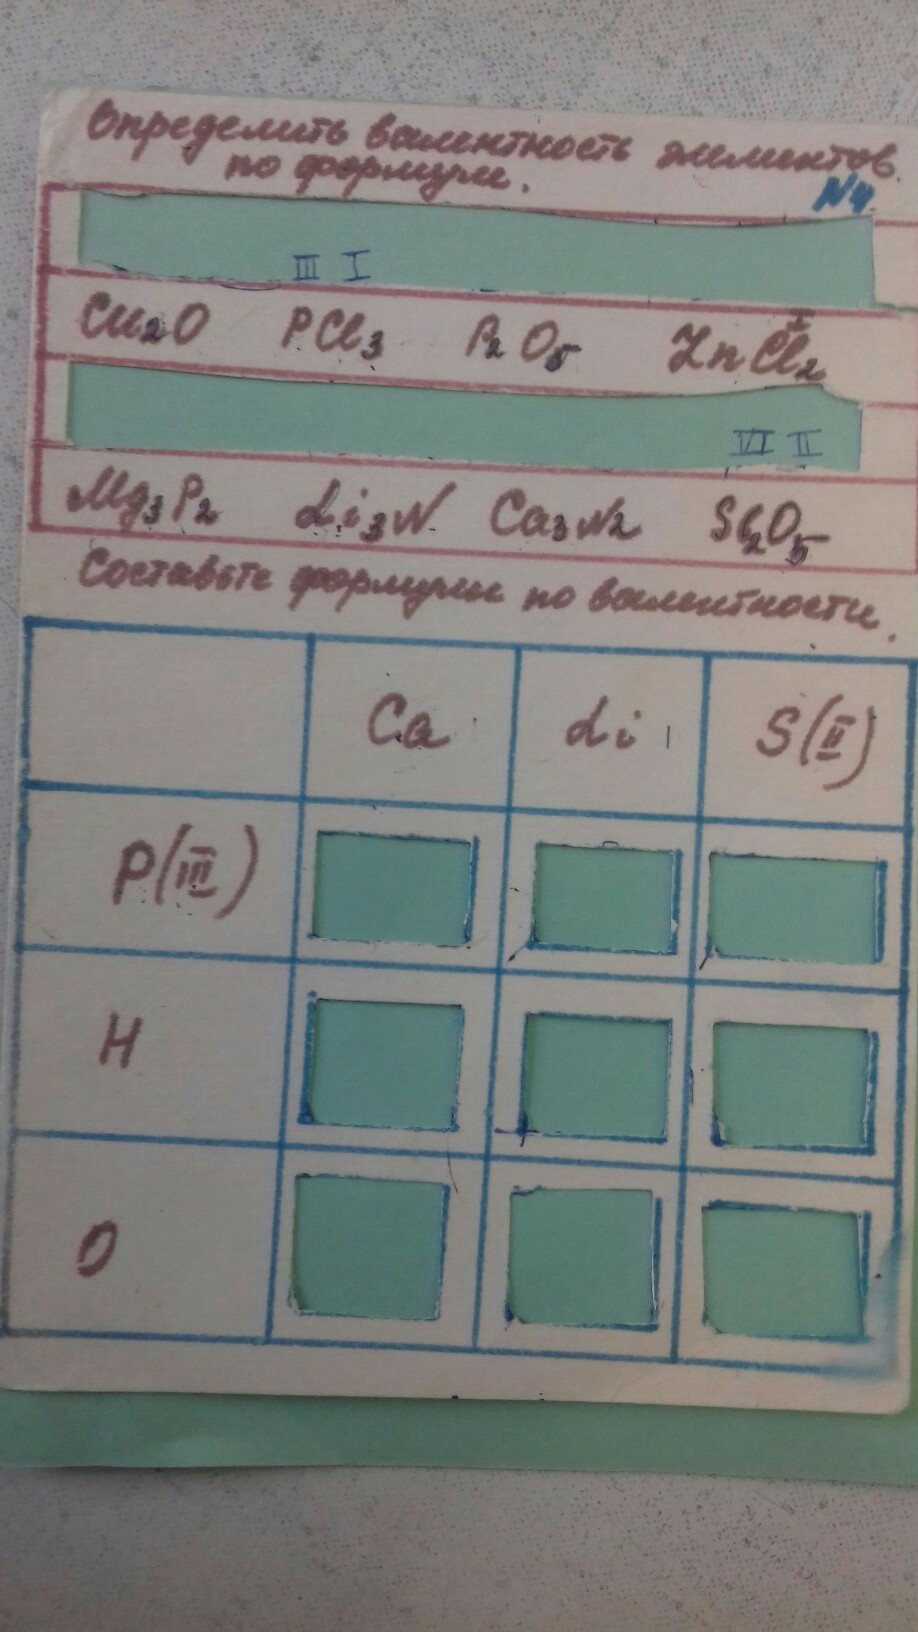 Определить валентность элементов
по формуле.
N4.
III I
Cu₂O PCl₃ P₂O₅ ZnCl₂ I
VI II
Mg₃P₂ Li₃N Ca₃N₂ Sb₂O₅
Составьте формулы по валентности.
Ca Li S(II)
P(III)
H
O